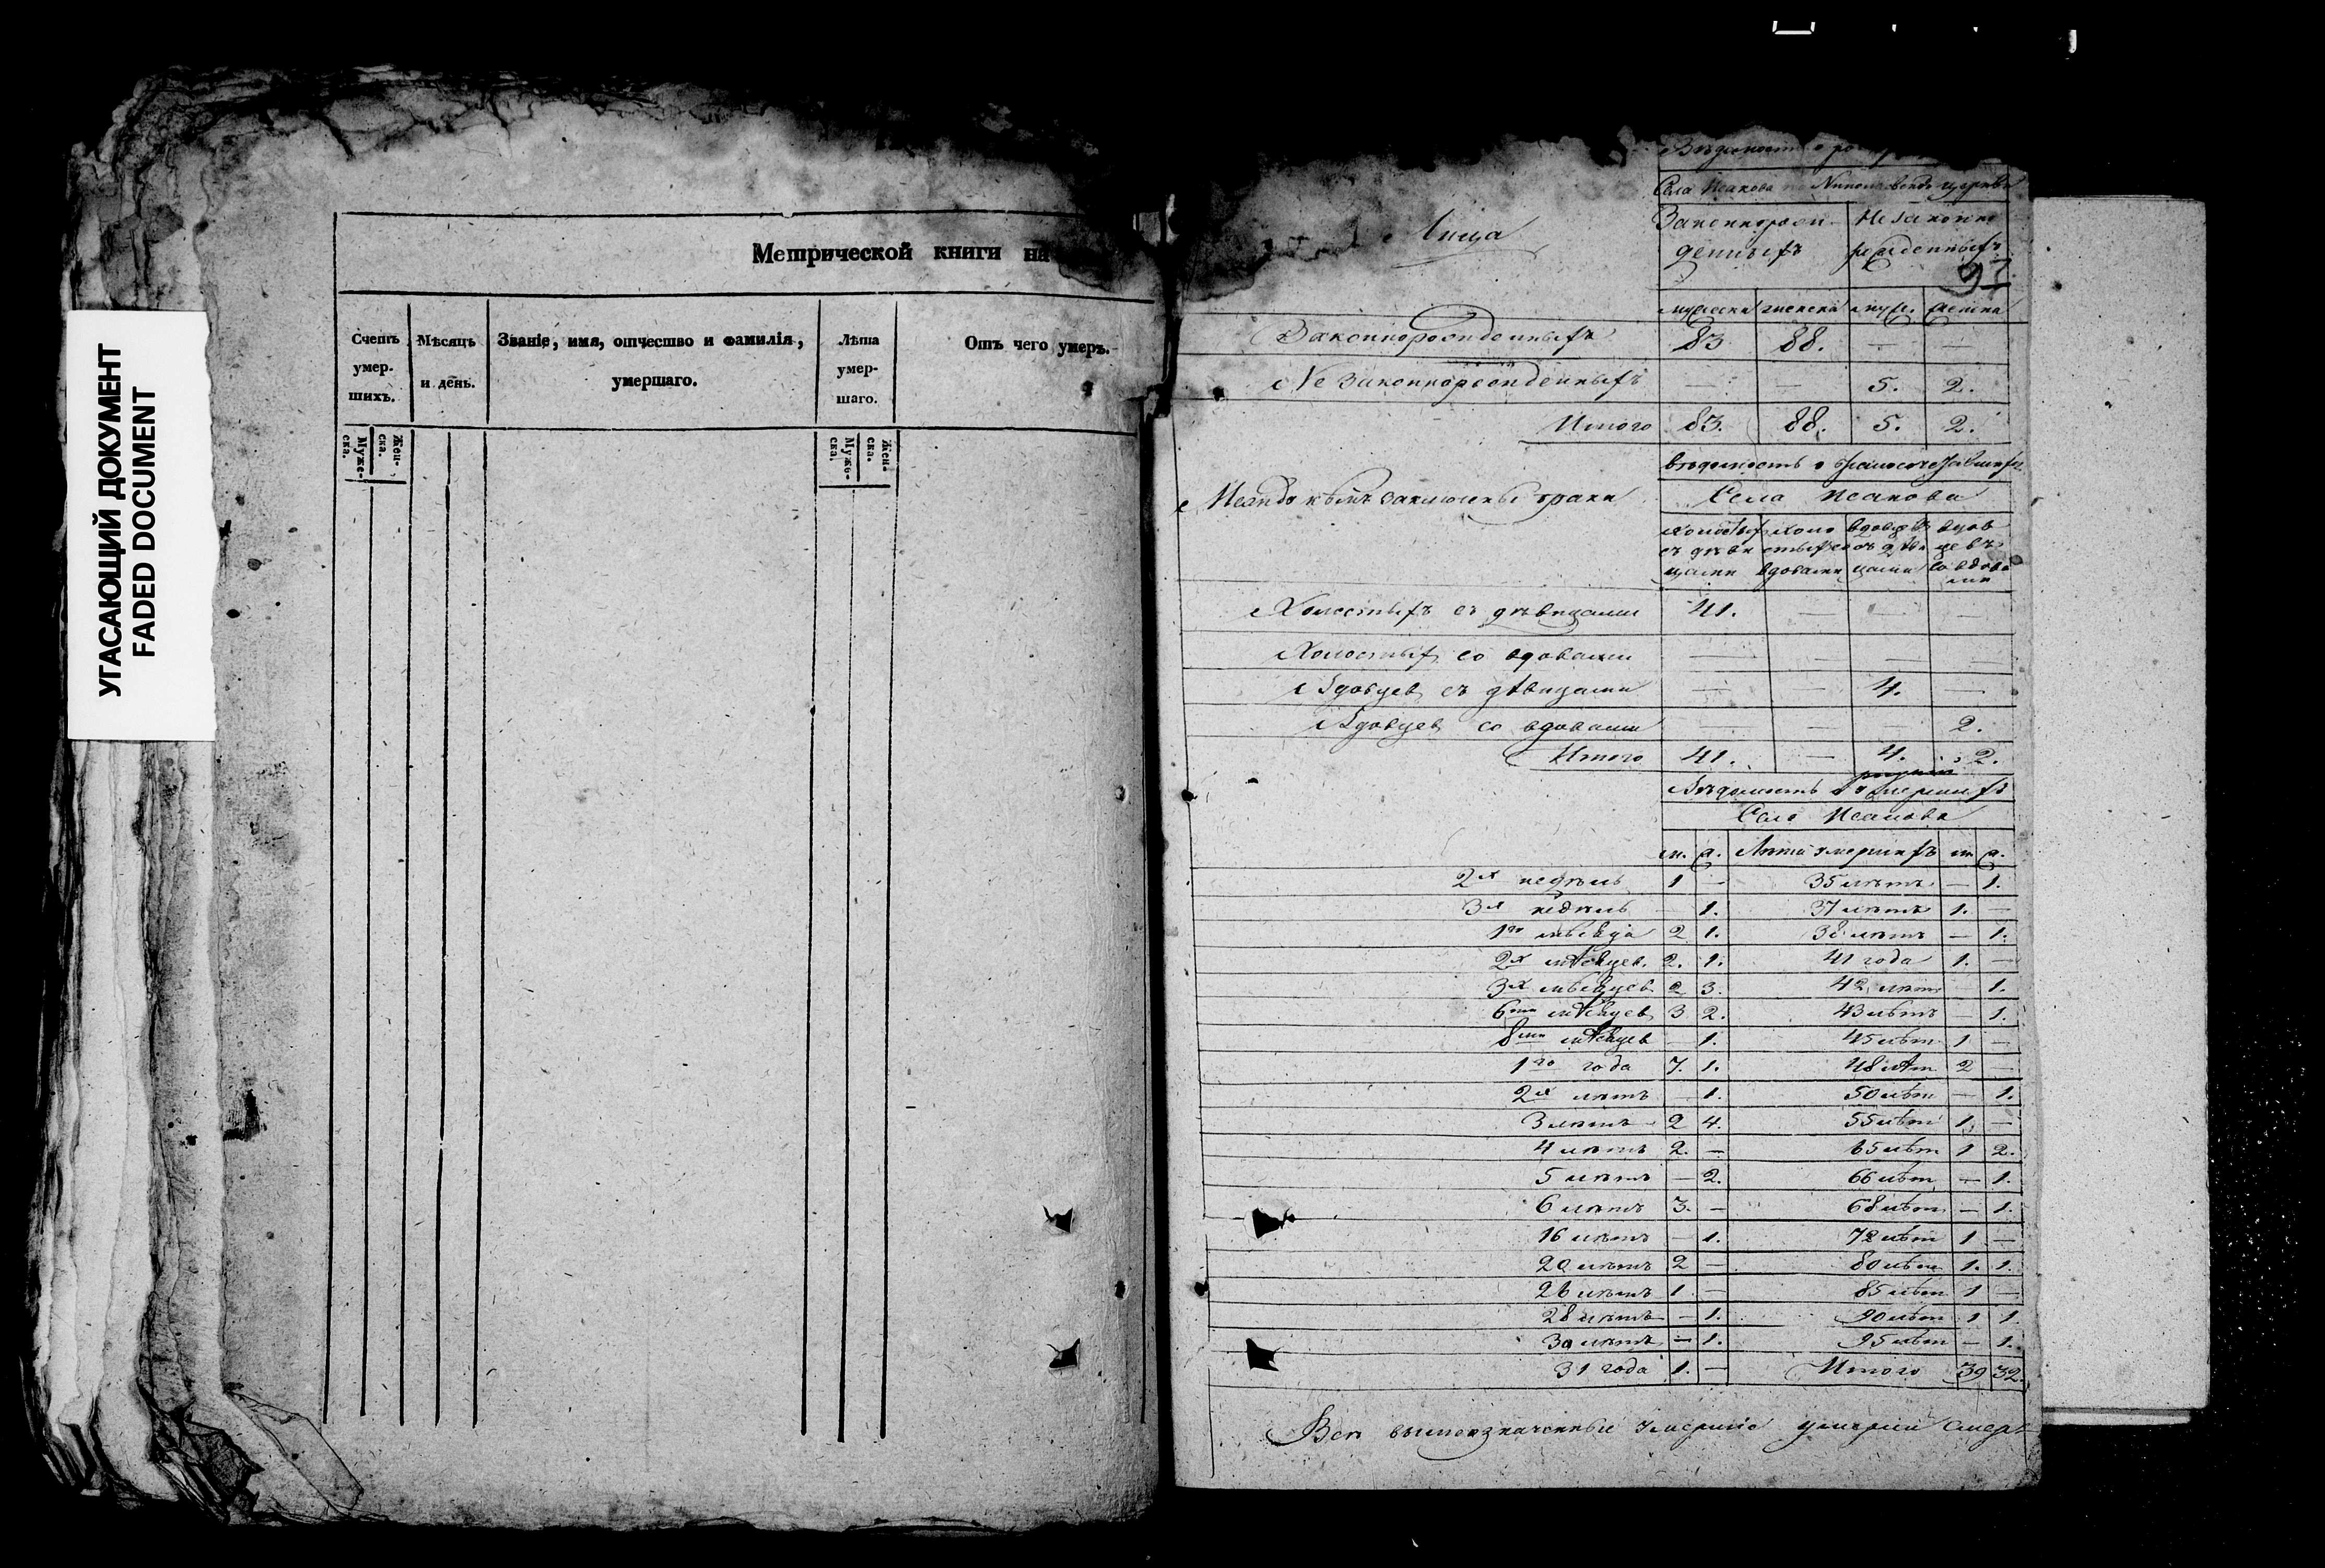 УГАСАЮЩИЙ ДОКУМЕНТ
FADED DOCUMENT
Метрической книги на
Счетъ умер- шихъ.
Мѣсяцъ и день.
Званіе, имя, отчество и фамилія, умершаго.
Лѣта умер- шаго.
Отъ чего умеръ.
Муже- ска.
Жен- ска.
Муже- ска.
Жен- ска.
Вѣдомость о ро
Села Исакова Николаевской церкви
Лица
Законнорож- денныхъ
Незаконно рожденныхъ
97
мужеска женска муж. женска
Законнорожденныхъ 83 88. — —
Незаконнорожденныхъ — — 5. 2.
Итого 83. 88. 5. 2.
Вѣдомость о бракосочетавшихся
Между кѣмъ заключены браки
Села Исакова
Холостыхъ съ дѣви цами
Холо стыхъ со вдовами
Вдовцевъ съ дѣви цами
Вдов цевъ со вдова ми
Холостыхъ съ дѣвицами 41. — — —
Холостых со вдовами — — — —
Вдовцев съ дѣвицами — — 4. —
Вдовцев со вдовами — — — 2.
Итого 41. — 4. 2.
Вѣдомость о умершихъ
Села Исакова
м. ж. Лѣта умершихъ м ж.
2х недѣль 1 — 35 лѣтъ — 1.
3х недѣль — 1. 37 лѣтъ 1. —
1го мѣсяца 2 1. 38 лѣтъ — 1.
2х мѣсяцев. 2. 1. 41 года 1. —
3х мѣсяцев 2 3. 42 лѣт — 1.
6ти мѣсяцев 3 2. 43 лѣтъ — 1.
8ми мѣсяцев — 1. 45 лѣт 1 —
1го года 7. 1. 48 лѣт 2 —
2х лѣтъ — 1. 50 лѣт — 1.
3 лѣтъ 2 4. 55 лѣт 1. —
4 лѣтъ 2. — 65 лѣт 1 2.
5 лѣтъ — 2. 66 лѣт — 1.
6 лѣтъ 3. — 68 лѣт — 1.
16 лѣтъ — 1. 72 лѣт 1 —
20 лѣтъ 2 — 80 лѣт 1. 1.
26 лѣтъ 1. — 85 лѣт 1 —
28 лѣтъ — 1. 90 лѣт 1 1
30 лѣтъ — 1. 95 лѣт — 1.
31 года 1. — Итого 39 32.
Всѣ вышеозначенные умершіе умерли смерт